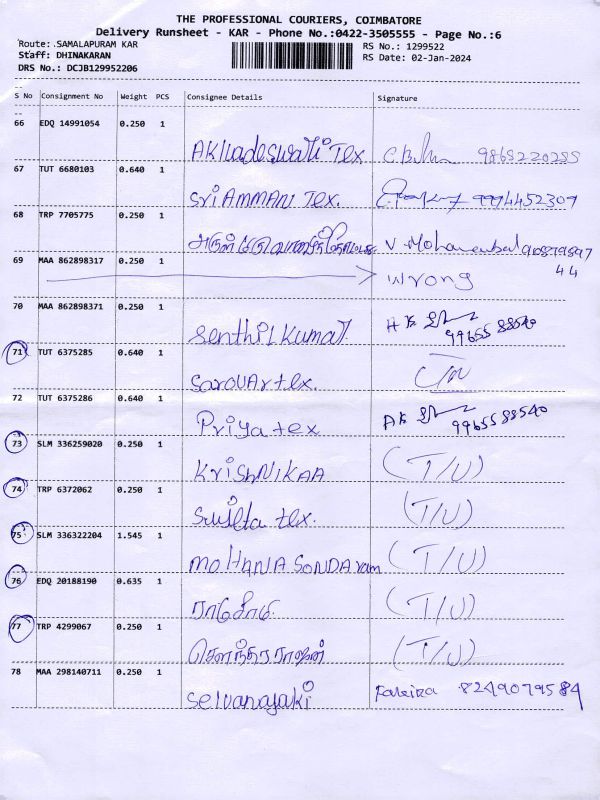 THE PROFESSIONAL COURIERS, COIMBATORE
Delivery Runsheet - KAR - Phone No.:0422-3505555 - Page No.:6
Route: .SAMALAPURAM KAR RS No.: 1299522
Staff: DHINAKARAN RS Date: 02-Jan-2024
DRS No.: DCJB129952206
S No Consignment No Weight PCS Consignee Details Signature
66 EDQ 14991054 0.250 1
AKiladeswari Tex 9865220255
67 TUT 6680103 0.640 1
Sri AMMAN Tex. 9994452309
68 TRP 7705775 0.250 1
V Mohan
69 MAA 862898317 0.250 1
wrong
70 MAA 862898371 0.250 1
Senthil Kumar. AK 9965588540
71 TUT 6375285 0.640 1
SarovAr tex.
72 TUT 6375286 0.640 1
Priya tex AK 9965588540
73 SLM 336259020 0.250 1
KriShNIKAA (T/U)
74 TRP 6372062 0.250 1
tex. (T/U)
75 SLM 336322204 1.545 1
MOHANA SONDARam (T/U)
76 EDQ 20188190 0.635 1
(T/U)
77 TRP 4299067 0.250 1
சௌந்தரராஜன் (T/U)
78 MAA 298140711 0.250 1
Selvanayaki 8249079584